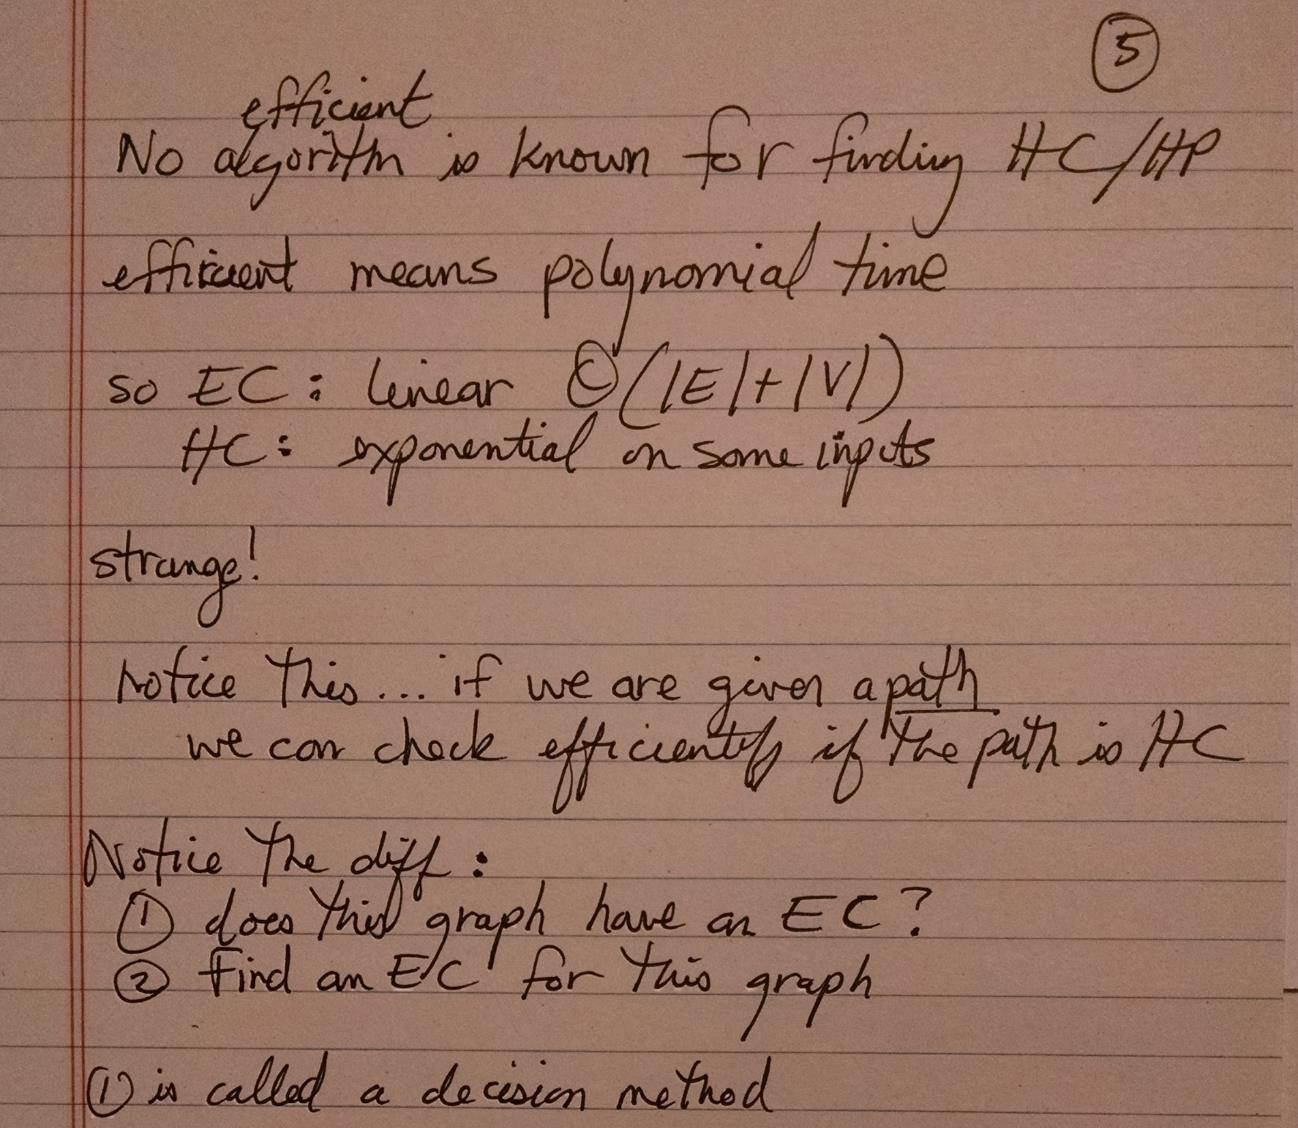 5
efficient
No algorithm is known for finding HC/HP
efficient means polynomial time
so EC: linear Θ(|E|+|V|)
HC: exponential on some inputs
strange!
Notice this... if we are given a path
we can check efficiently if the path is HC
Notice the diff:
① does this graph have an EC?
② Find an EC for this graph
① is called a decision method